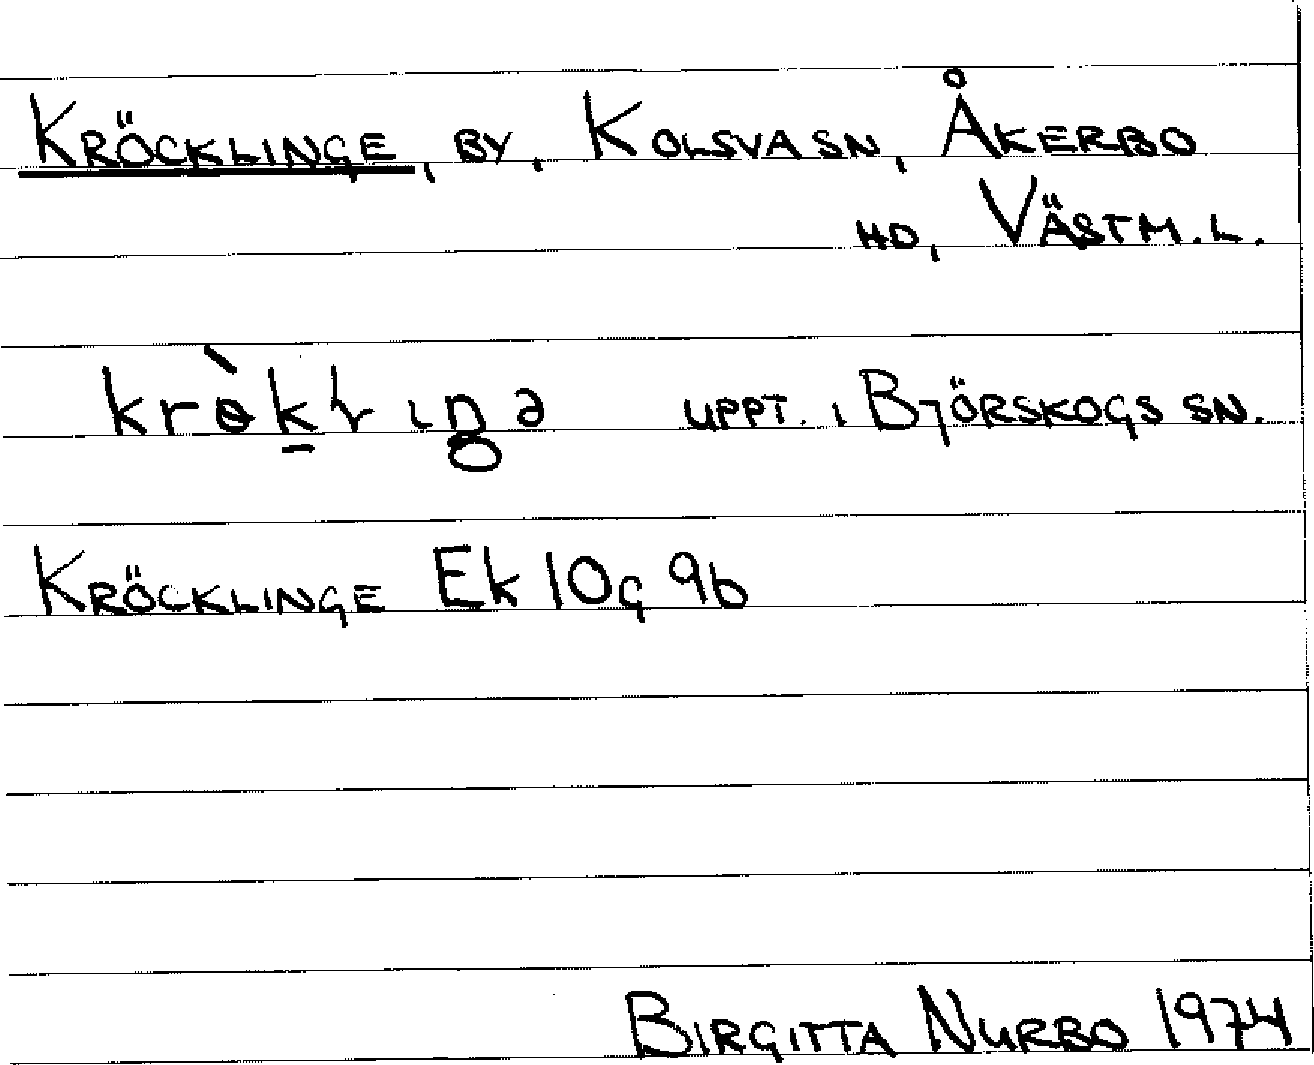 KRÖCKLINGE, BY, KOLSVA SN, ÅKERBO
HD, VÄSTM.L.
UPPT. I BJÖRSKOGS SN.
KRÖCKLINGE Ek 10g 9b
BIRGITTA NURBO 1974